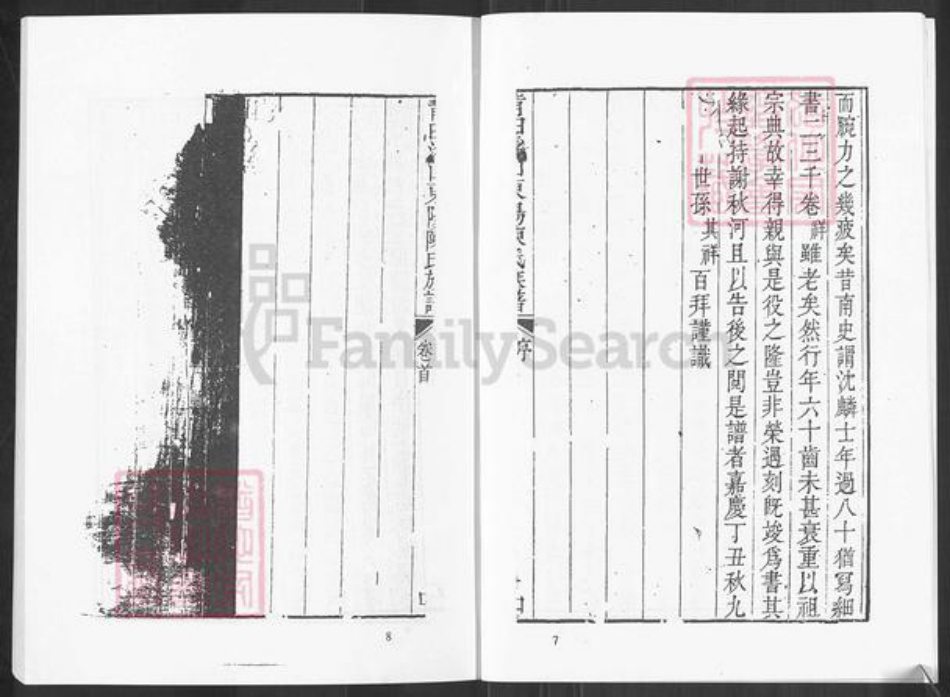 而腕力之幾疲矣昔南史謂沈麟士年過八十猶寫細
書二三千卷祥雖老矣然行年六十齒未甚衰重以祖
宗典故幸得親與是役之隆豈非榮遇刻旣竣爲書其
緣起持謝秋河且以告後之閱是譜者嘉慶丁丑秋九
世孫其祥百拜謹識
序
7
卷首
8
FamilySearch